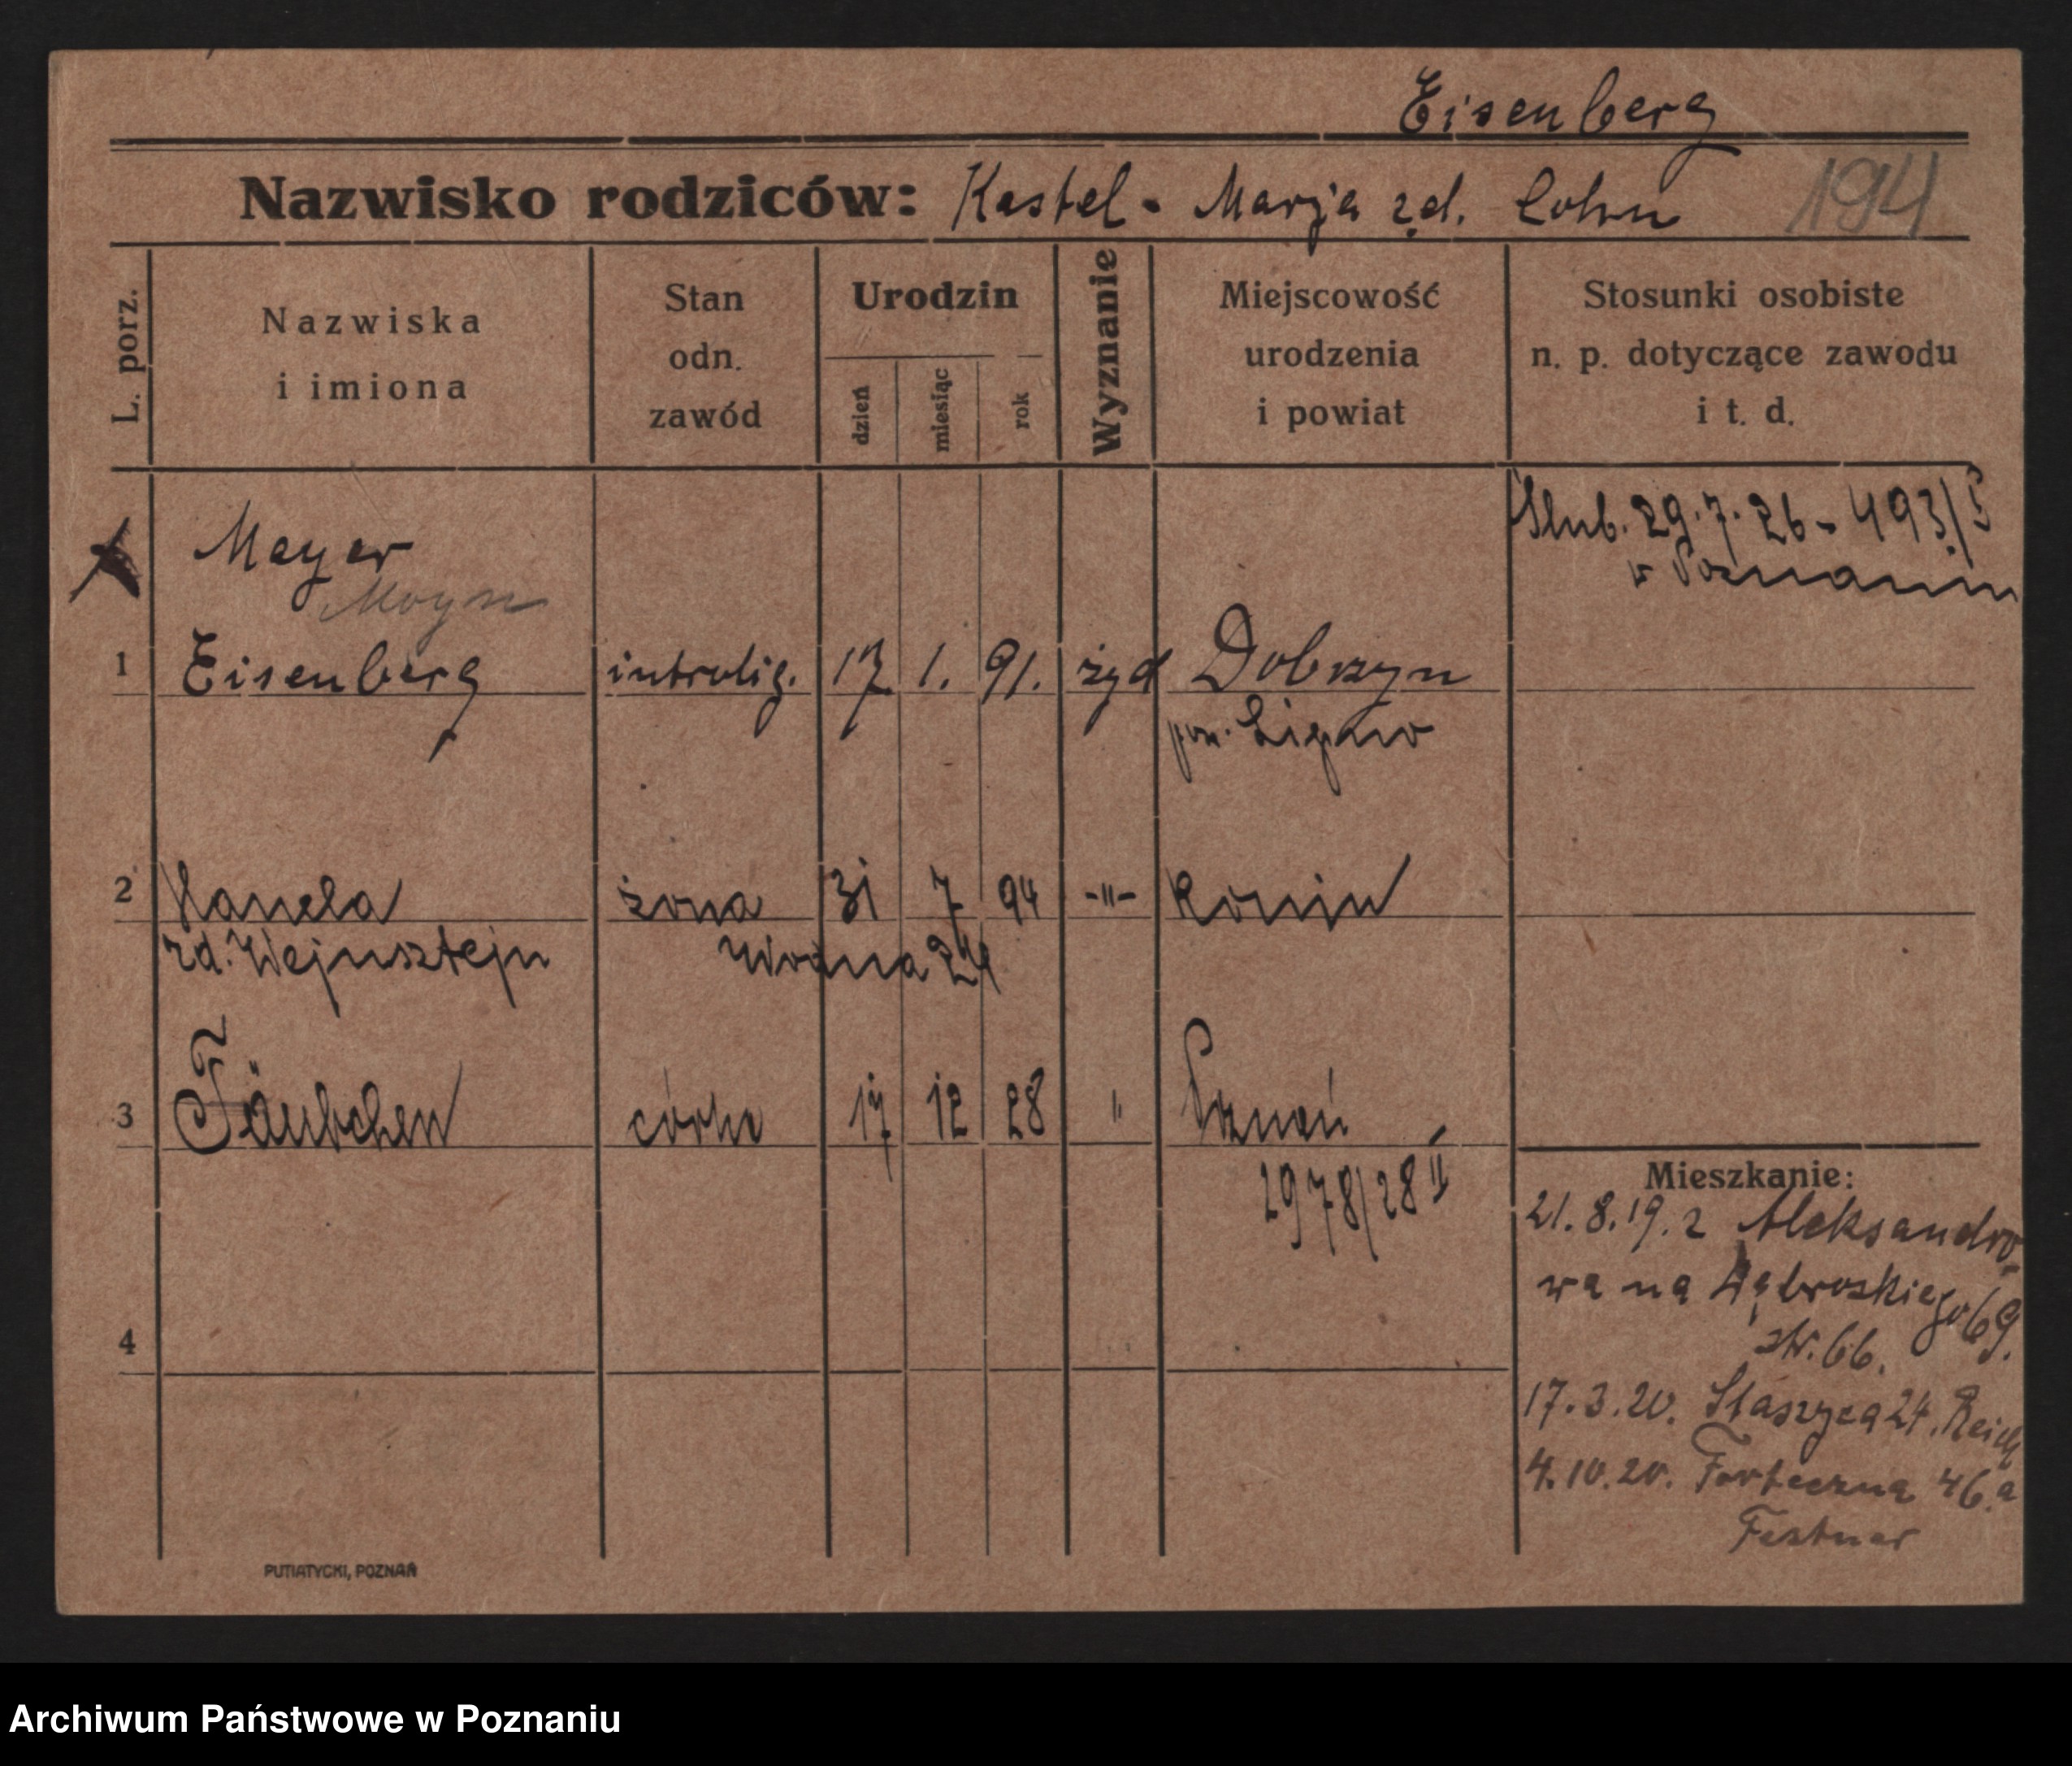 Eisenberg
Nazwisko rodziców: Kastel - Marja zd. Cohn 194
L. porz.
Nazwiska
i imiona
Stan
odn.
zawód
Urodzin
dzień
miesiąc
rok
Wyznanie
Miejscowość
urodzenia
i powiat
Stosunki osobiste
n. p. dotyczące zawodu
i t. d.
Ślub. 29.7.26 - 493/I
w Poznaniu
Meyer
1 Eisenberg introlig. 17. 1. 91. żyd Dobrzyn
pow. Lipno
2 żona 31 7 94 -"- Konin
zd. Wejnsztejn Wodna 24
3 Täubchen córka 17 12 28 " Poznań
2978/28 II
4
Mieszkanie:
21.8.19. z Aleksandro-
wa na Dąbroskiego 69.
str. 66.
17.3.20. Staszyca 24. Reich
4.10.20. Forteczna 46.a
Festner
PUTIATYCKI, POZNAŃ
Archiwum Państwowe w Poznaniu